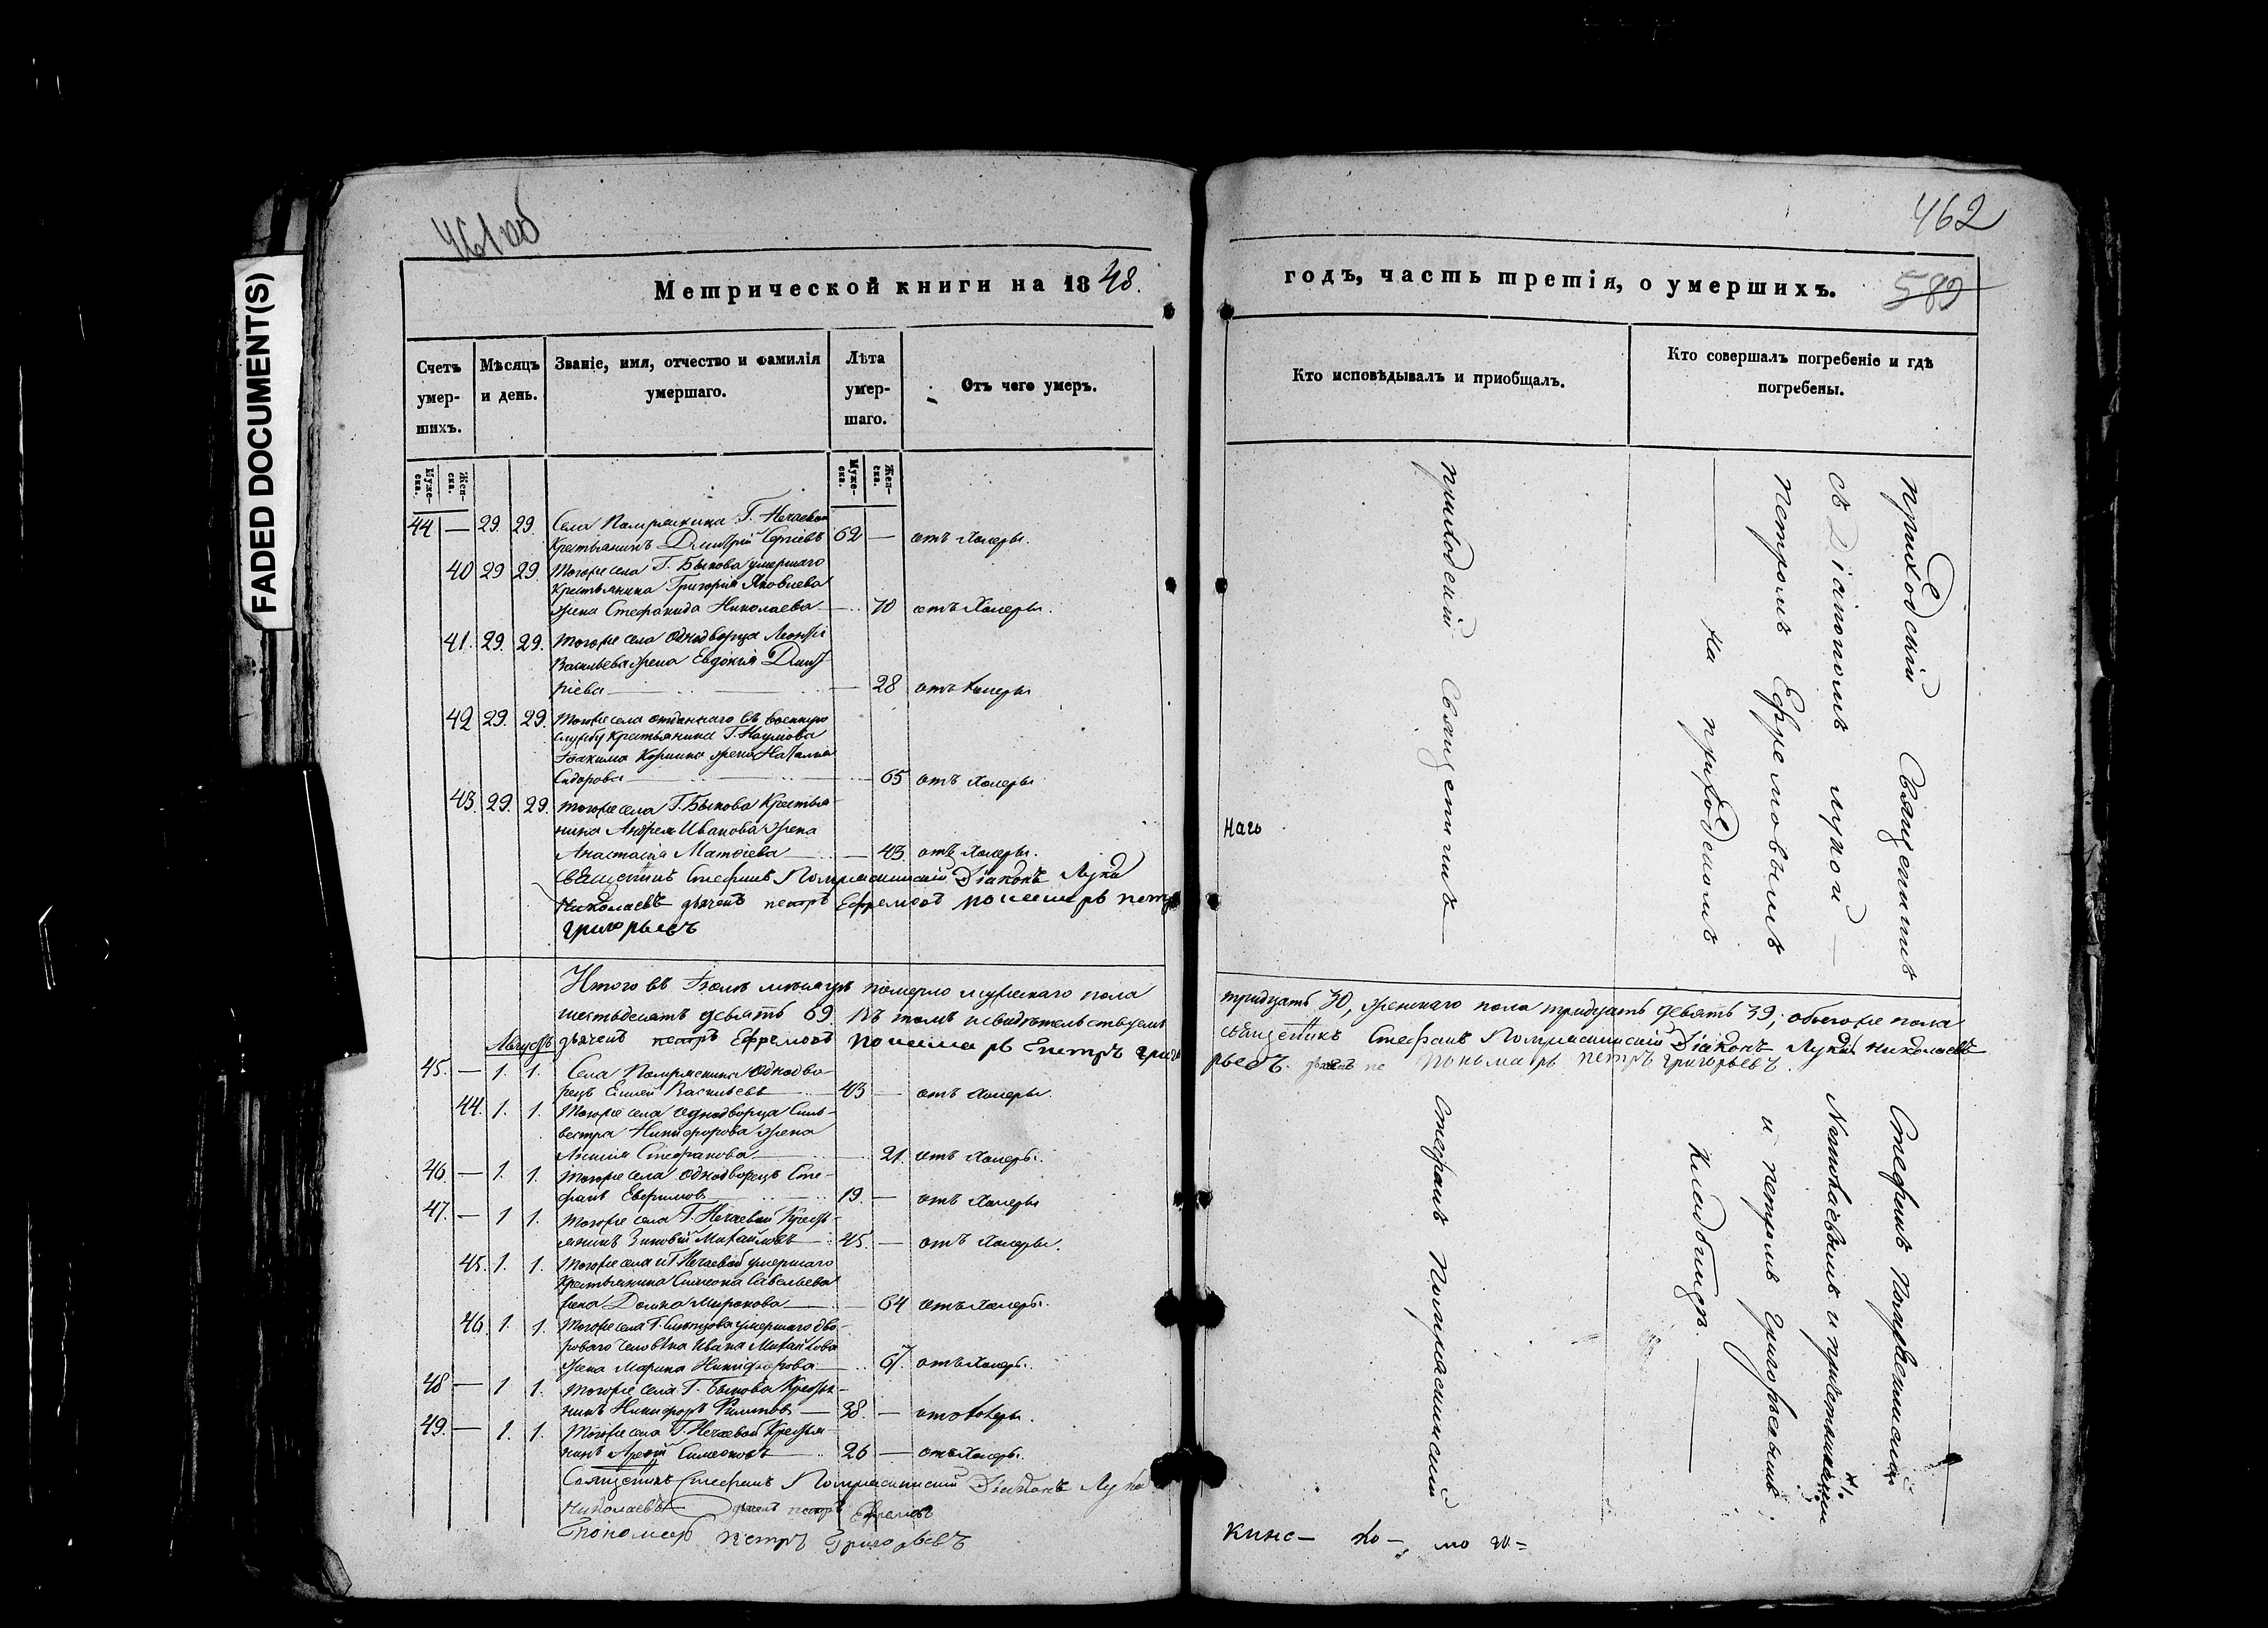 FADED DOCUMENT(S)
461 об
Метрической книги на 1848.
Счетъ умер-шихъ.
Мѣсяцъ и день.
Званіе, имя, отчество и фамилія умершаго.
Лѣта умер-шаго.
Отъ чего умеръ.
Муже-ска.
Жен-ска.
Муже-ска.
Жен-ска.
44 — 29. 29. Села Г. Нечаевой
Крестьянинъ Дмитрій Сергіевъ 62 — отъ Холеры.
40 29 29. Тогоже села Г. Быкова умершаго
Крестьянина Григорія Яковлева
жена Стефанида Николаева — 70 отъ Холеры.
41. 29. 29. Тогоже села однодворца Леонтія
Васильева жена Евдокія Дмит-
ріева — 28 отъ Холеры
42 29. 29. Тогоже села отданнаго въ военную
службу крестьянина Г. Наумова
жена Наталія
Сидорова — 65 отъ Холеры
43. 29. 29. Тогоже села Г. Быкова Крестья-
нина Андрея Иванова жена
Анастасія Матѳіева — 43. отъ Холеры.
Священникъ Стефанъ Діаконъ Лука
Николаевъ дьячекъ петръ Ефремовъ пономарь петръ
григорьевъ
Итого въ Іюлѣ мѣсяцѣ померло мужескаго пола
шестьдесятъ девять 69. Въ томъ и свидѣтельствуемъ
дьячекъ петръ Ефремовъ пономарь петръ григо
Августъ
45. — 1. 1. Села однодво-
рецъ Васильевъ 43 — отъ Холеры.
44. 1. 1. Тогоже села однодворца Силь-
вестра Никифорова жена
Стефанова 21. отъ Холеры.
46 — 1. 1. Тогоже села однодворецъ Сте-
фанъ 19. — отъ Холеры
47. — 1 1. Тогоже села Г. Нечаевой Кресть-
янинъ Зиновій Михайловъ 45. — отъ Холеры.
45. 1. 1. Тогоже села Г. Нечаевой умершаго
Крестьянина Симеона Савельева
жена Домна Миронова — 64 отъ Холеры.
46. 1. 1. Тогоже села Г. умершаго дво-
роваго человѣка Ивана Михайлова
жена Марина Никифорова — 67. отъ Холеры.
48 — 1 1. Тогоже села Г. Быкова Крестья-
нинъ Никифоръ Филиповъ — 38. — отъ Холеры.
49. — 1. 1. Тогоже села Г. Нечаевой Крестья-
нинъ Симеоновъ 26 — отъ Холеры.
Священникъ Стефанъ Діаконъ Лука
Николаевъ дьячекъ петръ Ефремовъ
пономарь петръ Григорьевъ
462
годъ, часть третія, о умершихъ.
589
Кто исповѣдывалъ и приобщалъ.
Кто совершалъ погребеніе и гдѣ погребены.
приходскій Священникъ —
приходскій Священникъ
съ Діакономъ лукой —
Петромъ Ефремовымъ
— на приходскомъ
Наго
тридцать 30, женскаго пола тридцать девять 39; обоего же пола
священникъ Стефанъ Діаконъ Лука николаевъ
рьевъ. пономарь петръ григорьевъ.
Стефанъ
Стефанъ
Николаевымъ и причетниками
и петромъ Григорьевымъ
кладбищѣ. —
кинс — хо —, мо го =